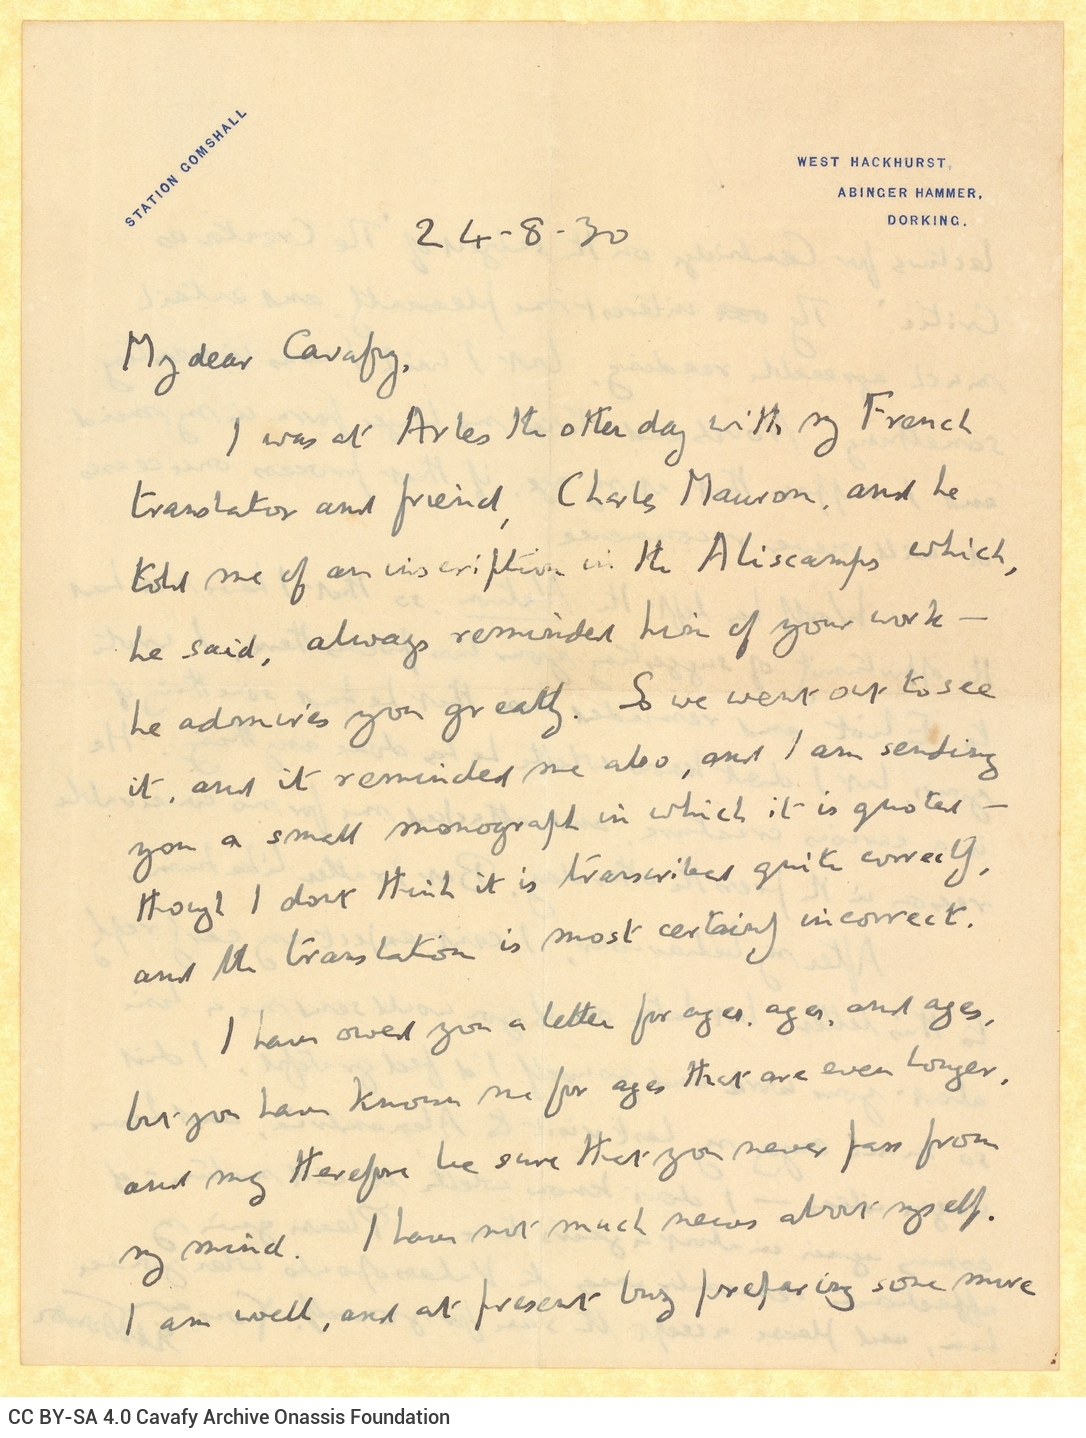 STATION GOMSHALL
WEST HACKHURST,
ABINGER HAMMER,
DORKING.
24-8-30
My dear Cavafy,
I was at Arles the other day with my French
translator and friend, Charles Mauron, and he
told me of an inscription in the Aliscamps which,
he said, always reminded him of your work —
he admires you greatly. So we went out to see
it, and it reminded me also, and I am sending
you a small monograph in which it is quoted —
though I dont think it is transcribed quite correctly,
and the translation is most certainly incorrect.
I have owed you a letter for ages, ages, and ages,
but you have known me for ages that are even longer,
and may therefore be sure that you never pass from
my mind. I have not much news about myself.
I am well, and at present busy preparing some more
CC BY-SA 4.0 Cavafy Archive Onassis Foundation